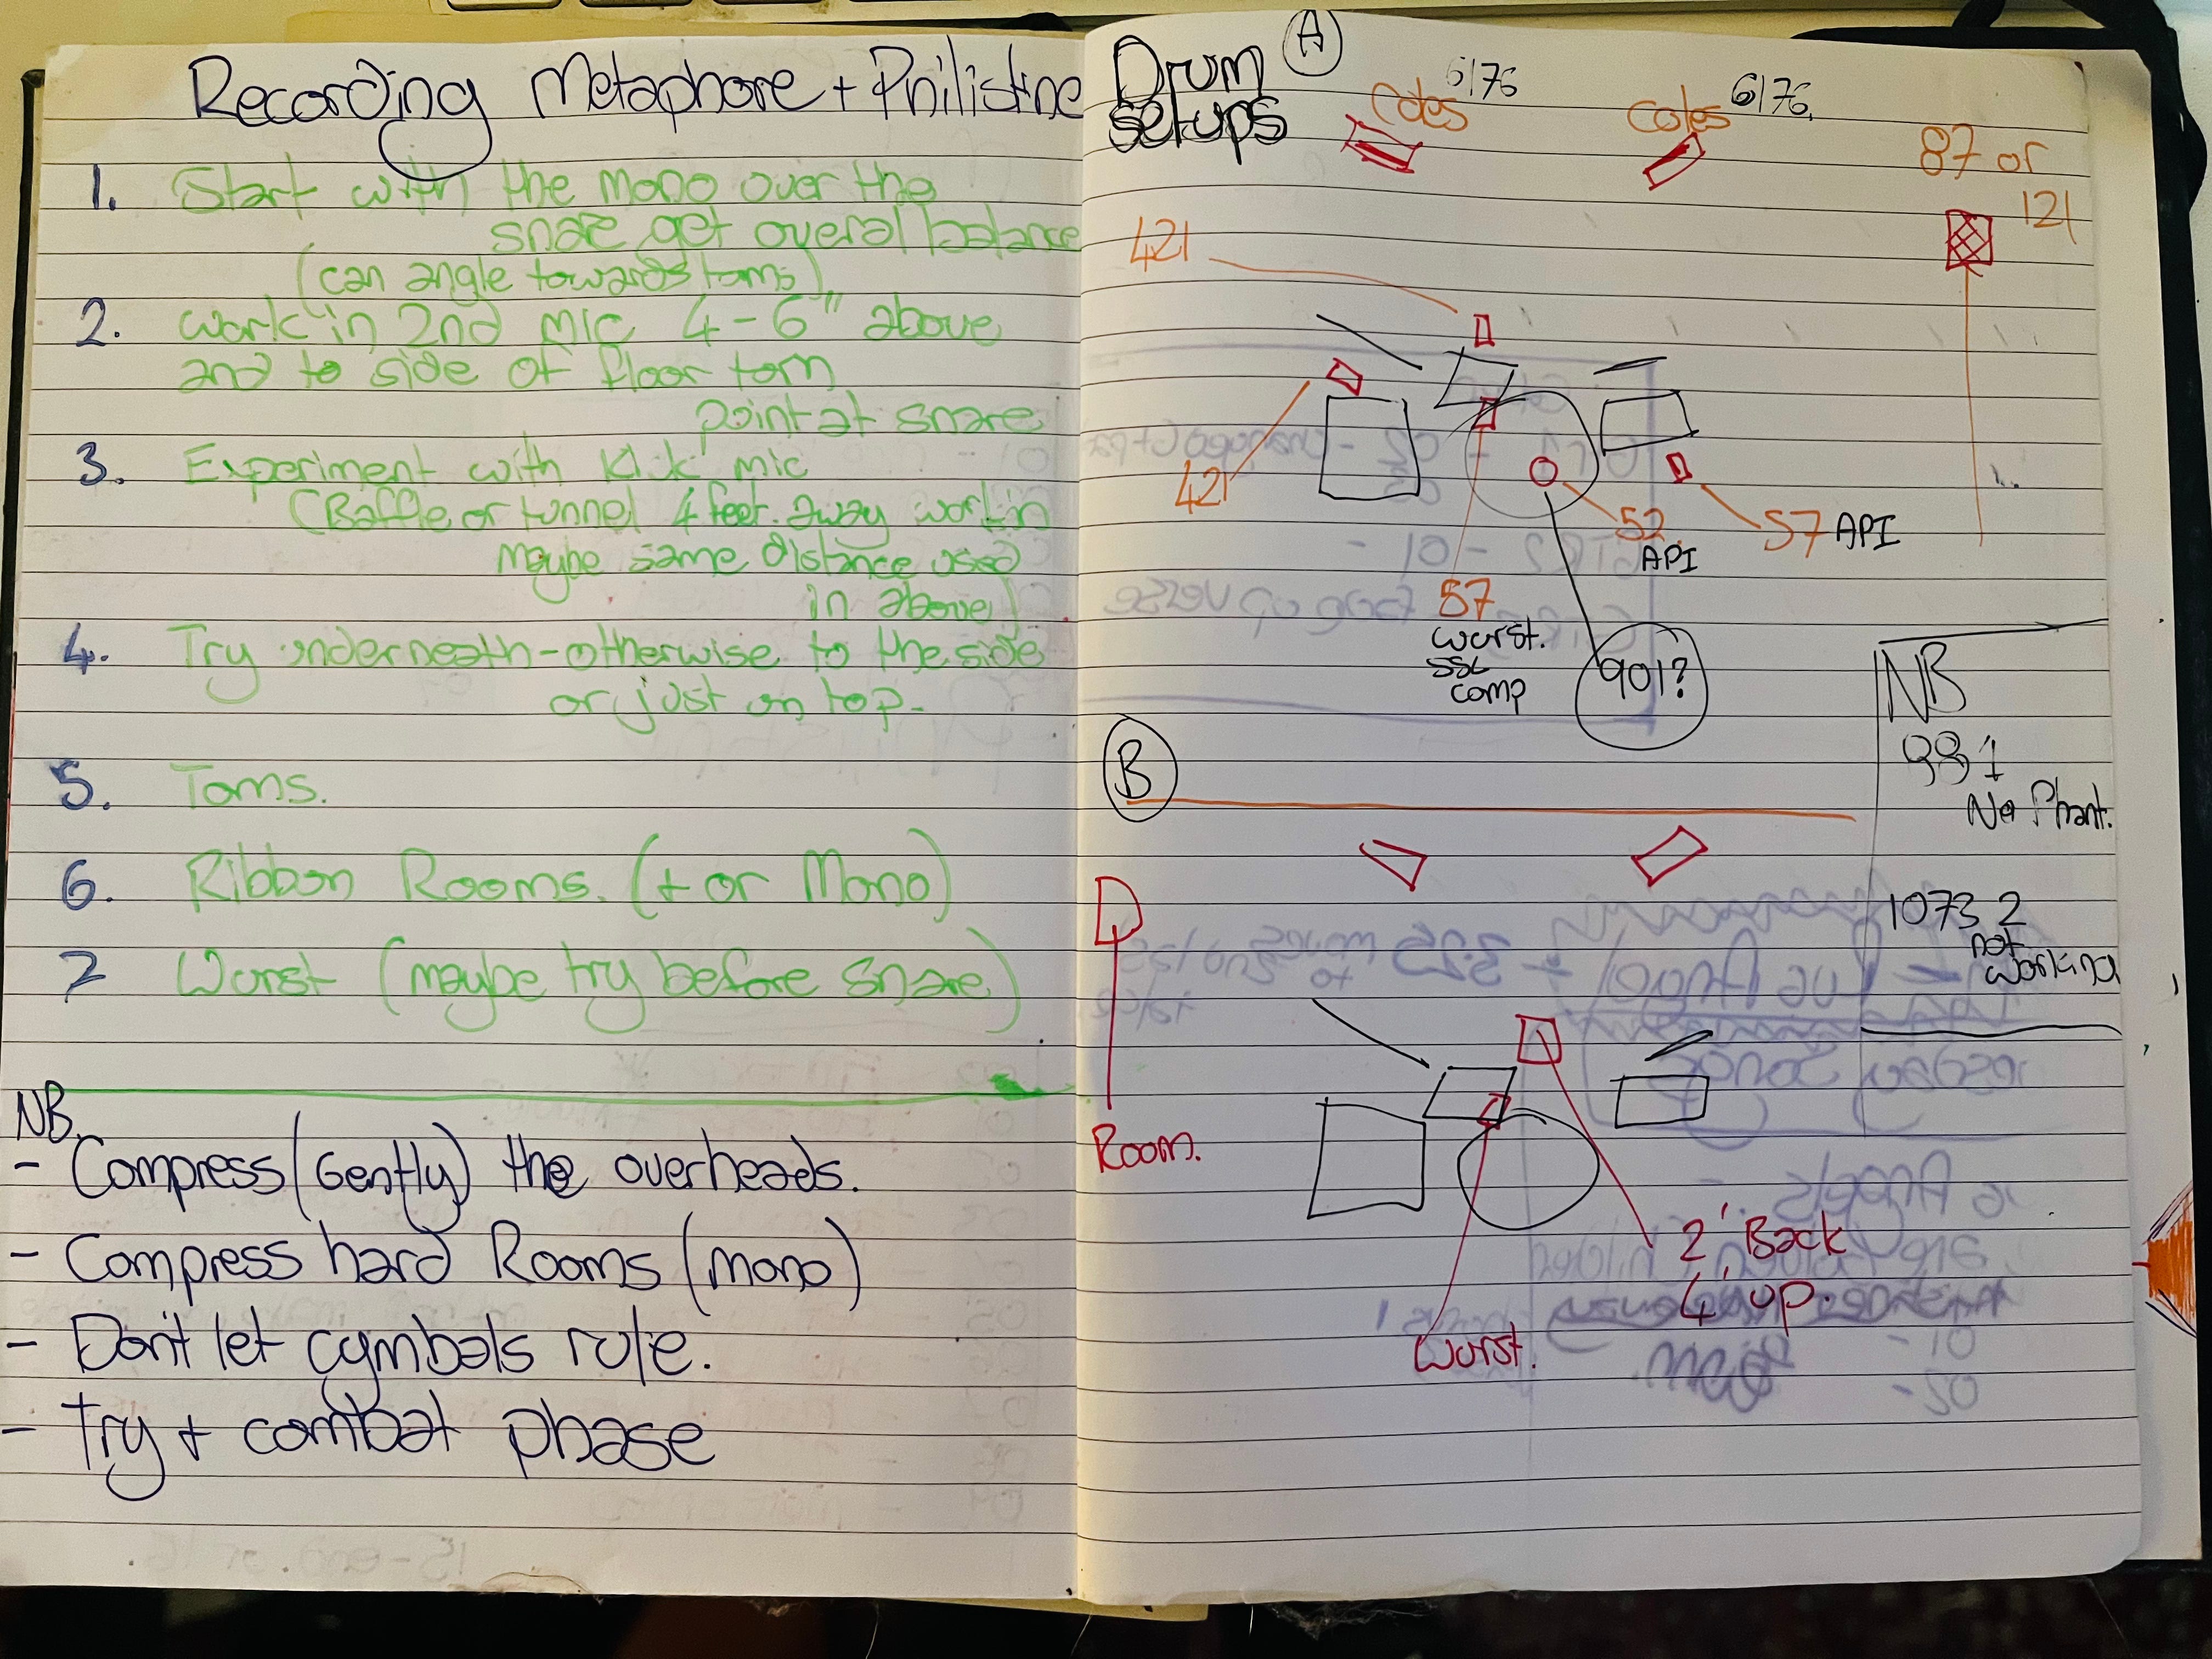 Recording Metaphore + Philistine
1. Start with the mono over the
snare get overall balance
(can angle towards toms)
2. work in 2nd mic 4-6" above
and to side of floor tom
point at snare
3. Experiment with Kick mic
(Baffle or tunnel 4 feet. away work in
maybe same distance used
in above)
4. Try underneath - otherwise to the side
or just on top.
5. Toms.
6. Ribbon Rooms. (+ or Mono)
7 Wurst (maybe try before snare)
NB.
- Compress (Gently) the overheads.
- Compress hard Rooms (mono)
- Don't let cymbals rule.
- Try + combat phase
Drum
setups
A
Coles 6176
Coles 6176.
87 or
121
421
421
52
API
57 API
57
wurst.
SSL
comp
901?
NB
991
No Phant.
1073 2
not
working
B
Room.
2' Back
4' up.
Wurst.